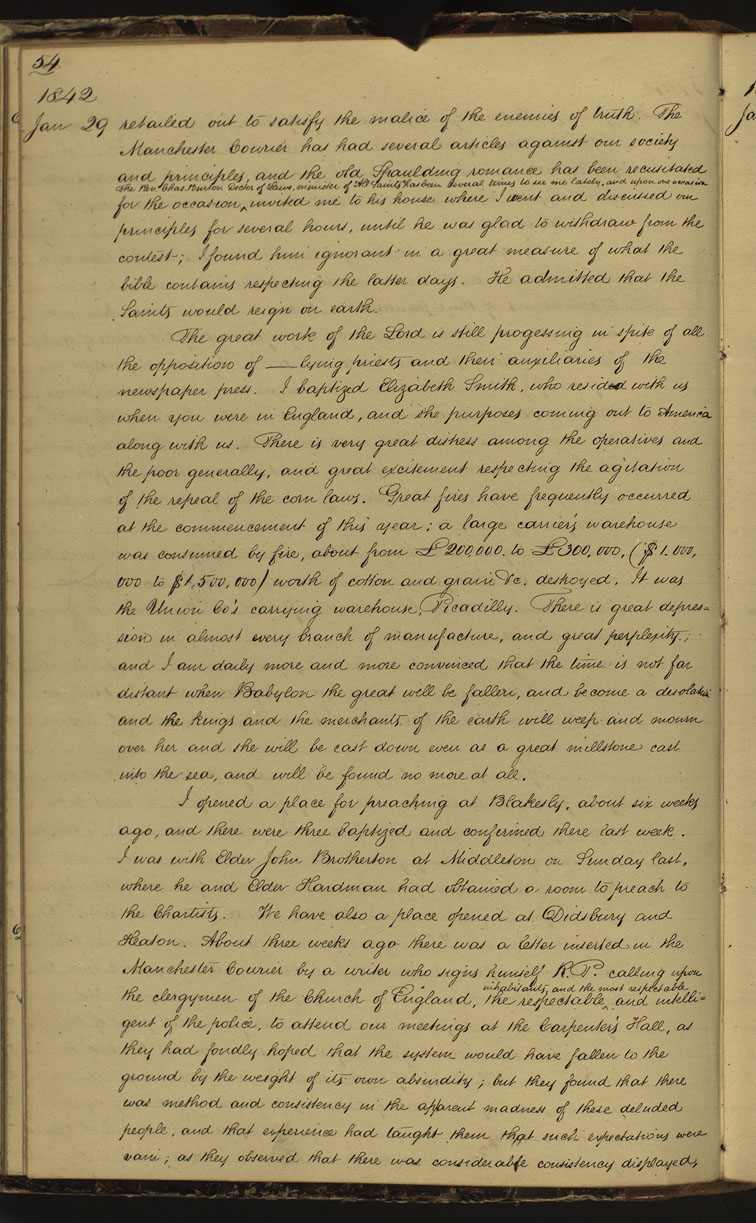 54
1842
Jan 29 retailed out to satisfy the malice of the enemies of truth. The
Manchester Courier has had several articles against our society
and principles, and the old Spaulding romance has been recusitated
The Rev Chas. Burton Doctor of Laws, minister of All Saints has been several times to see me lately, and upon one occasion
for the occasion, ^ invited me to his house where I went and discussed our
principles for several hours, until he was glad to withdraw from the
contest; I found him ignorant in a great measure of what the
bible contains respecting the latter days. He admitted that the
Saints would reign on earth.
The great work of the Lord is still progessing in spite of all
the opposition of — lying priests and their auxiliaries of the
newspaper press. I baptized Elizabeth Smith, who resided with us
when you were in England, and she purposes coming out to America
along with us. There is very great distress among the operatives and
the poor generally, and great excitement respecting the agitation
of the repeal of the corn laws. Great fires have frequently occurred
at the commencement of this year; a large carrier's warehouse
was consumed by fire, about from £200,000. to £300,000, ($1.000,
000 to $1,500,000) worth of cotton and grain &c. destroyed. It was
the Union Co's carrying warehouse, Picadilly. There is great depres=
sion in almost every branch of manufacture, and great perplexity;
and I am daily more and more convinced that the time is not far
distant when Babylon the great will be fallen, and become a desolation
and the kings and the merchants of the earth will weep and mourn
over her and she will be cast down even as a great millstone cast
into the sea, and will be found no more at all.
I opened a place for preaching at Blakesly, about six weeks
ago, and there were three baptized and confirmed there last week.
I was with Elder John Brotherton at Middleton on Sunday last,
where he and Elder Hardman had obtained a room to preach to
the Chartists. We have also a place opened at Didsbury and
Heaton. About three weeks ago there was a letter inserted in the
Manchester Courier by a writer who signs himself R.P. calling upon
inhabitants, and the most respectable
the clergymen of the Church of England, the respectable ^ and intelli=
gent of the police, to attend our meetings at the Carpenter's Hall, as
they had fondly hoped that the system would have fallen to the
ground by the weight of its own absurdity; but they found that there
was method and consistency in the apparent madness of these deluded
people, and that experience had taught them that such expectations were
vain; as they observed that there was considerable consistency displayed,